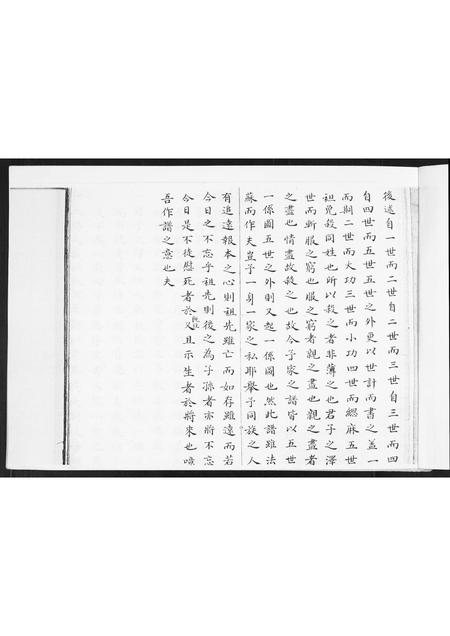 後遂自一世而二世自二世而三世自三世而四
自四世而五世五世之外更以世計而書之蓋一
而期二世而大功三世而小功四世而緦麻五世
祖免殺同姓也所以殺之者非薄之也君子之澤
世而斬服之窮也服之窮者親之盡也親之盡者
之盡也情盡故殺之也故今予家之譜皆以五世
一係圖五世之外則又起一係圖也然此譜雖法
蘇而作夫豈予一身一家之私耶舉予同族之人
有追遠報本之心則祖先雖亡而如存雖遠而若
今日之不忘乎祖先則後之為子孫者亦將不忘
今日是不徒慰死者於既往又且示生者於將來也噫
吾作譜之意也夫